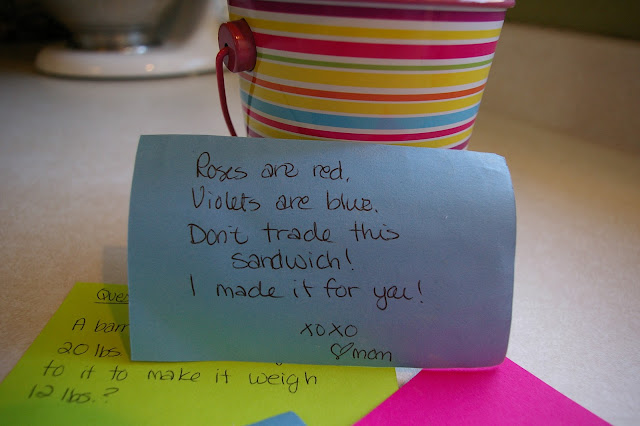 Roses are red,
Violets are blue.
Don't trade this
sandwich!
I made it for you!
xoxo
♡mom
Ques
A barr
20 lbs
to it to make it weigh
12 lbs.?